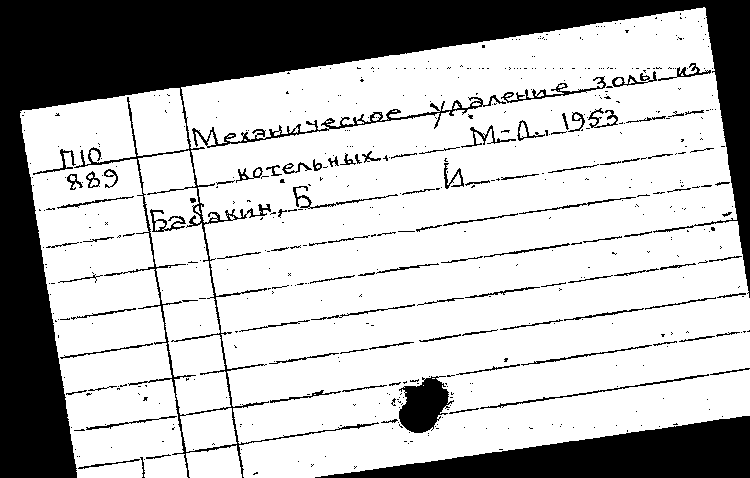 Механическое удаление золы из
П10
889
котельных. М.-Л., 1953
Бабакин, Б И.